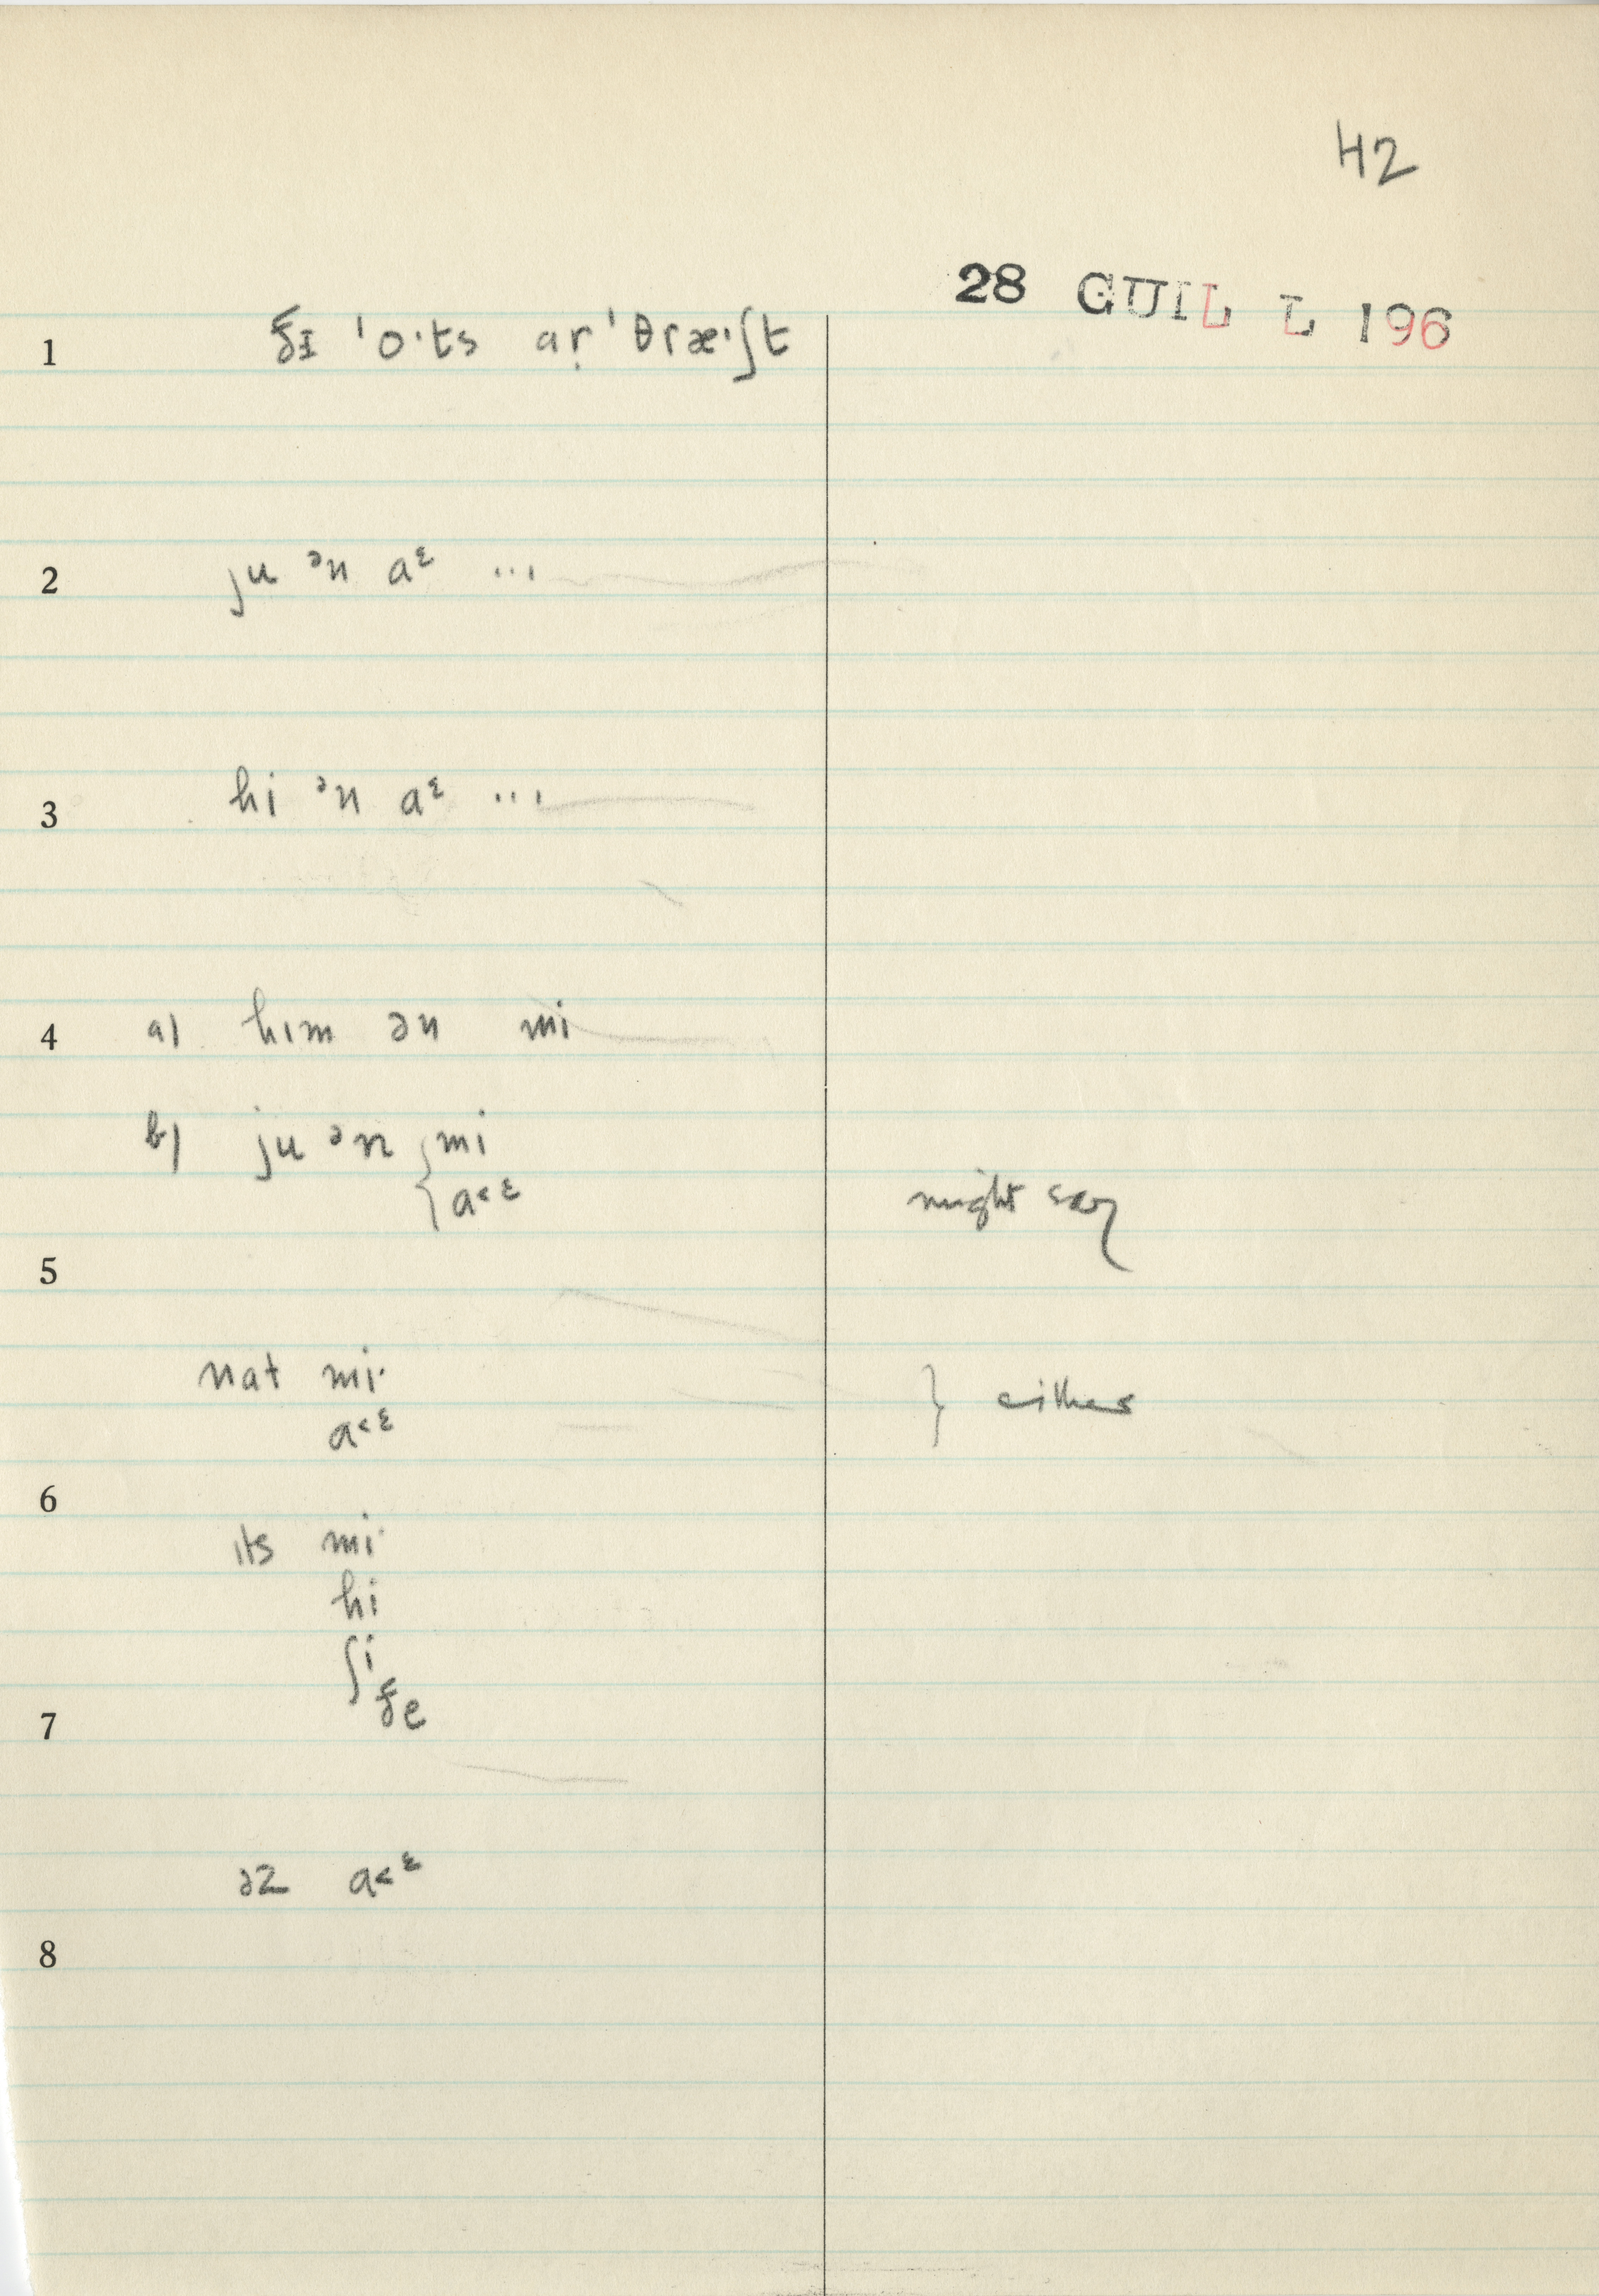 42
28 GUIL L 196
1 ðɪ ˈoˑts aṛ ˈθræˑʃt
2 ju ᵊn aᵋ ...
3 hi ᵊn aᵋ ...
4 a) hɪm ən mi
b) ju ᵊn { mi
a˂ᵋ might say
5
nat miˑ
a˂ᵋ } either
6
ɪts miˑ
hi
ʃi
ðe
7
əz a˂ᵋ
8